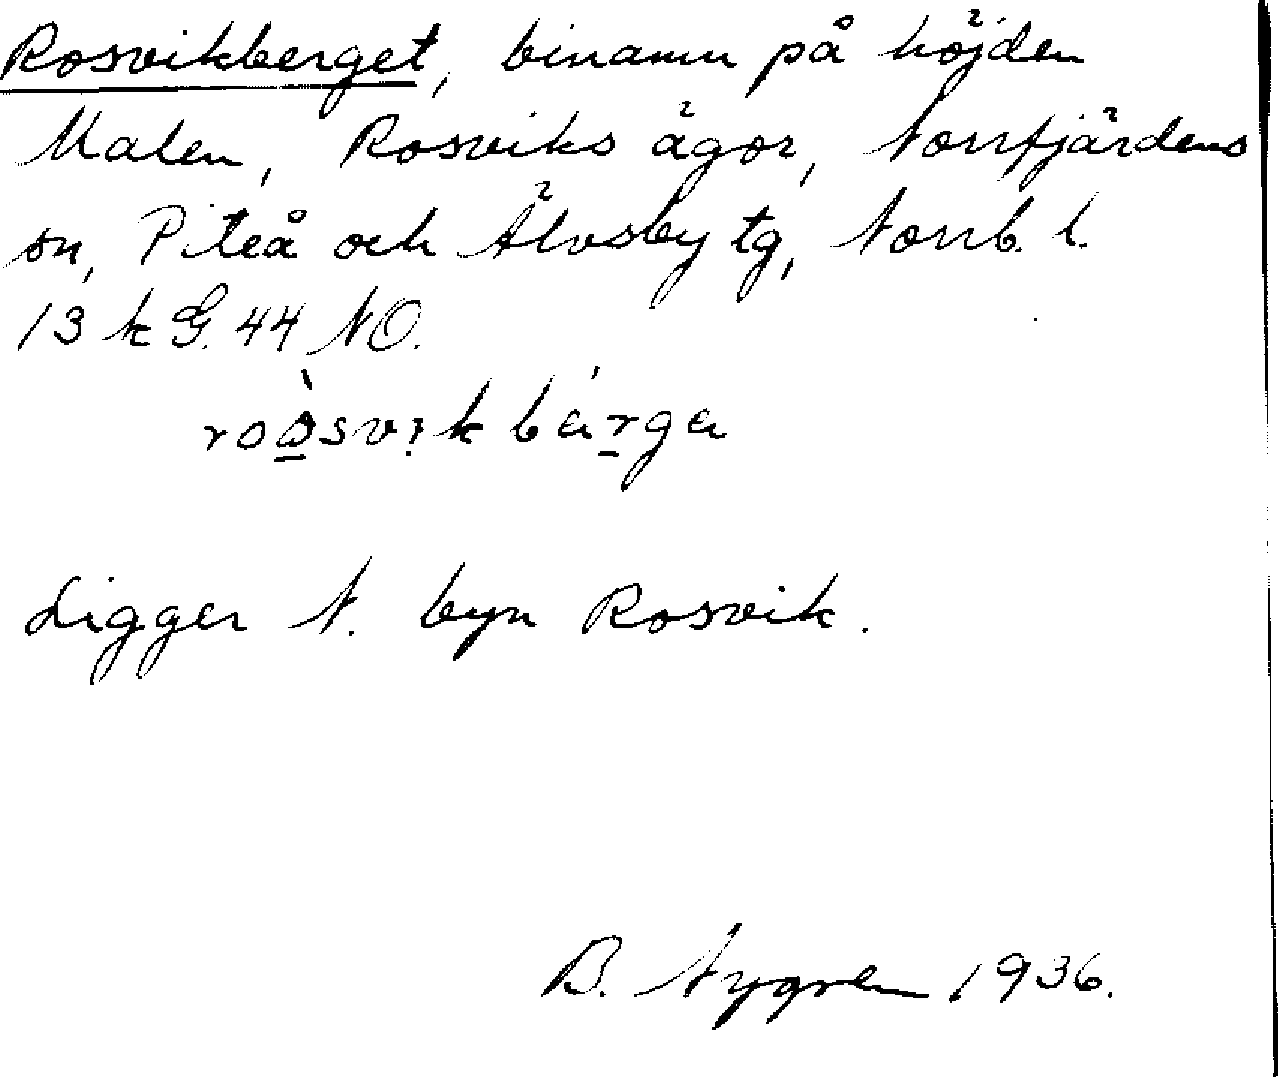 Rosvikberget, binamn på höjden
Malen, Rosviks ägor, Norrfjärdens
sn, Piteå och Älvsby tg, Norrb. l.
13 k G. 44 NO.
roòsvikbárga
Ligger N. byn Rosvik.
B. Nygren 1936.